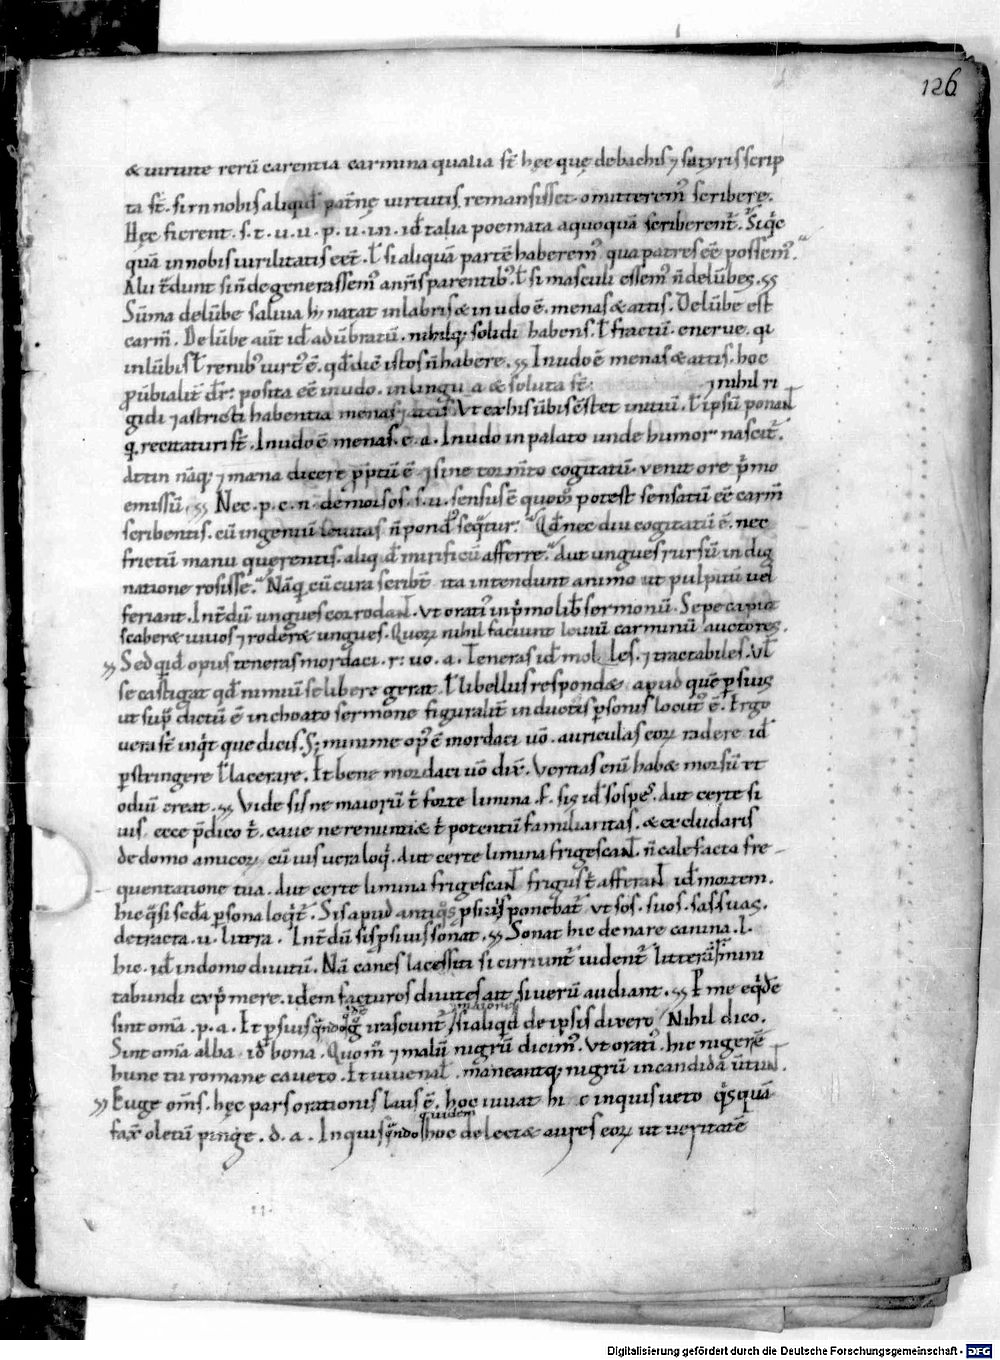 126
& uirtute rerū carentia carmina qualia st̄ hęc quę debachis ⁊ satyris scrip
ta st̄. si in nobis aliquid patn̄ę uirtutis remansisset omitteremꝰ scribere.
Hęc fierent. s. t. u. u. p. u. in. id talia poemata aquoquā scriberent̄. Siq̄e
quā in nobis uirilitatis eēt. ł si aliquā partē haberemꝰ qua patres eē possemꝰ.
Alii t̄dunt si n̄ degenerassemꝰ an̄ris parentibꝰ. ł si masculi essemꝰ n̄ delūbes.
Sūma delūbe saliua h̄ natat in labris & in udo ē. menas & attis. Delūbe est
carm̄. Delūbe aūt id adūbratū. nihilq; solidi habens. ł fractū. enerue. qi
in lūbis ł renibꝰ uirtꝰ ē. qd̄ diē istos n̄ habere. In udo ē menas & attis. hoc
puibialit̄ dr̄: posita eē in udo. in lingu a & soluta st̄: ⁊ nihil ri
gidi ⁊ astricti habentia menas ⁊ attis. Vt ex his ūbis ēstet initiū. ł ipsū ponant
q. recitaturi st̄. In udo ē menas. e. a. In udo in palato unde humor nascit̄.
Attin nāq; ⁊ mana dicere pp̄tū ē ⁊ sine tormn̄to cogitatiū. uenit ore p̄mo
emissū. Nec. p. c. n. demorsos. s. u. sensus ē quom̄ potest sensatū eē carm̄
scribentis. cū ingeniū leuitas n̄ pondꝰ seq̄tur: Qd̄ nec diu cogitatū ē. nec
frictū manu querentis. aliqd̄ mirificū afferre. Aut ungues rursū in dig
natione rosisse. Nāq; cū cura scribt̄ ita intendunt animo ut pulpitū uel
feriant. Int̄dū ungues corrodant. Vt oratiꝰ in p̄mo lib̄ sermonū. Sepe caput
scaber& uiuos ⁊ roder& ungues. Quoꝝ nihil faciunt leuiū carminū auctores.
Sed qd̄ opus teneras mordaci. r: uo. a. Teneras id mol les. ⁊ tractabiles. Vł
se castigat qd̄ nimiū se libere gerat. ł libellus respond& apud quē p̄sius
ut sup̄ dictū ē inchoato sermone figuralit̄ inductis p̄sonis locutꝰ ē. Ergo
uera st̄ inq̄t que dicis. S; minime opꝰ ē mordaci uō. auriculas eoꝝ radere id
p̄stringere ł lacerare. Et bene mordaci uō dix̄. Veritas enī hab& morsū et
odiū creat. Vide sis ne maiorū t̄ forte limina. f. sis id sospes. Aut certe si
uis ecce p̄dico t̄. caue ne renunti& t̄ potentū familiaritas. & excludaris
de domo amicoꝝ cū uis uera loq̄. Aut certe limina frigescant. n̄ calefacta fre
quentatione tua. Aut certe limina frigescant frigus t̄ afferant id mortem.
hic q̄si scd̄a p̄sona loq̄t̄. Sis apud antiq̄s p̄ suis ponebat̄ ut sos. suos. sas suas.
detracta. u. litera. Int̄dū sis p̄ si uis sonat. Sonat hic de nare canina. l.
hic. id in domo diuitū. Nā canes lacessiti si cirriunt̄ uident̄ litterā mini
tabundi exp̄mere. idem facturos diuites ait si uerū audiant. P me eq̄dē
sint om̄a. p. a. Et p̄sius irascunt̄ si aliquid de ipsis dixero. Nihil dico.
maiores
Sint om̄a alba id bona. Quom̄ ⁊ malū nigrū dicimꝰ. Vt oratiꝰ. hic niger ē
hunc tu romane caueto. Et iuuenal. maneantq; nigrū in candidā ūtunt.
Euge om̄s. hęc pars orationis laus ē. hoc iuuat hi c inquis ueto q̄squā
quidem
fax̄ oletū pinge. d. a. Inquis q̄ndo hoc delect& aures eoꝝ ut ueritatē
Digitalisierung gefördert durch die Deutsche Forschungsgemeinschaft - DFG